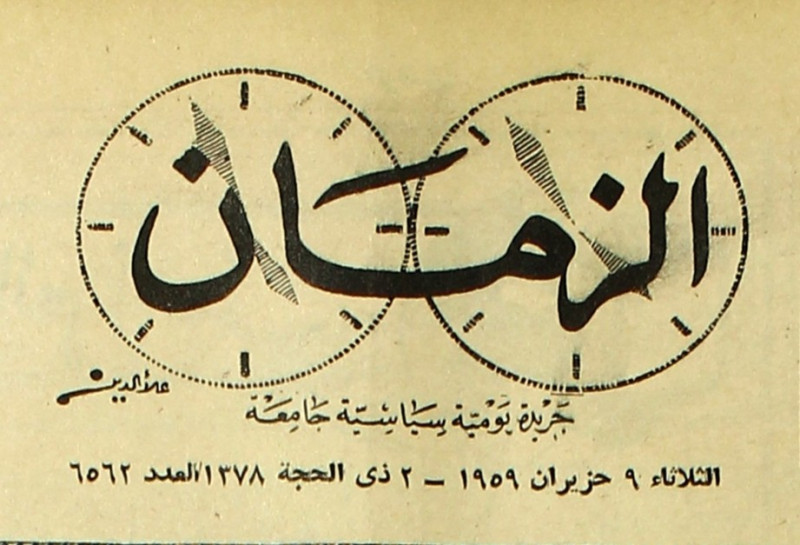 الزمان
علاءالدين
جريدة يومية سياسية جامعة
الثلاثاء ٩ حزيران ١٩٥٩ – ٢ ذى الحجة ١٣٧٨ العدد ٦٥٦٢